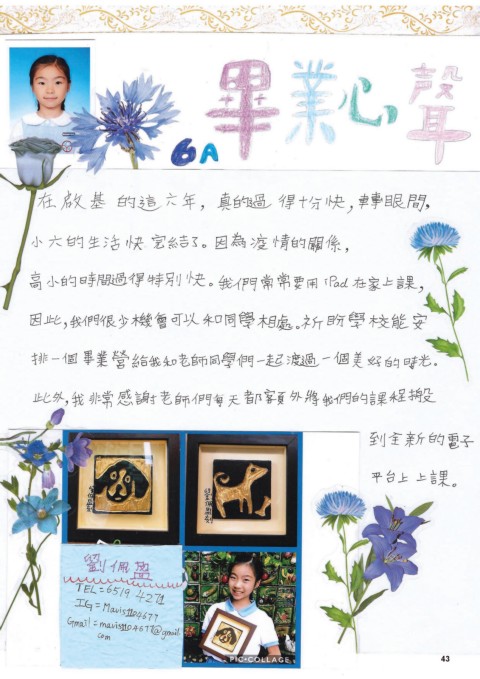 畢業心聲
6A
在啟基的這六年，真的過得十分快，轉眼間，
小六的生活快完結了。因為疫情的關係，
高小的時間過得特別快。我們常常要用 iPad 在家上課，
因此，我們很少機會可以和同學相處。祈盼學校能安
排一個畢業營給我和老師同學們一起渡過一個美好的時光。
此外，我非常感謝老師們每天都額外將我們的課程搬
到全新的電子
平台上上課。
劉佩盈
TEL=6519 4271
IG=Mavis1104677
Gmail=mavis1104677@gmail
com
PIC•COLLAGE
43